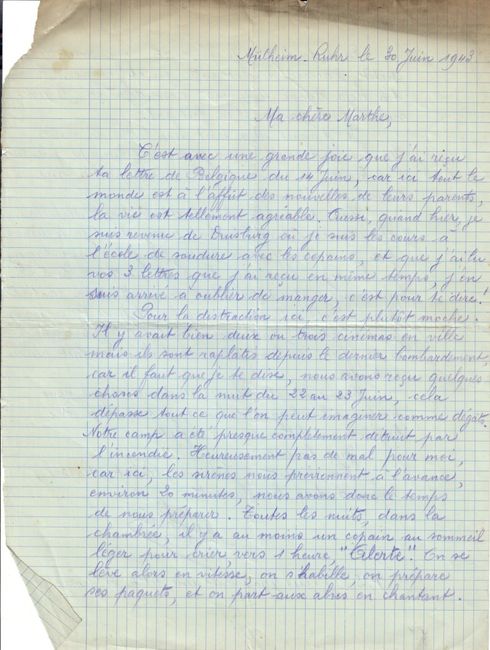 Mülheim-Ruhr le 30 Juin 1943
Ma chère Marthe,
C'est avec une grande joie que j'ai reçu
ta lettre de Belgique du 14 Juin, car ici tout le
monde est à l'affût des nouvelles de leurs parents,
la vie est tellement agréable. Aussi, quand hier, je
suis revenu de Duisburg où je suis les cours à
l'école de soudure avec les copains, et que j'ai lu
vos 3 lettres que j'ai reçu en même temps, j'en
suis arrivé à oublier de manger, c'est pour te dire!
Pour la distraction ici, c'est plutôt moche.
Il y avait bien deux ou trois cinémas en ville
mais ils sont raplatis depuis le dernier bombardement,
car il faut que je te dise, nous avons reçu quelques
choses dans la nuit du 22 au 23 Juin, cela
dépasse tout ce que l'on peut imaginer comme dégâts.
Notre camp a été presque complètement détruit par
l'incendie. Heureusement pas de mal pour moi,
car ici, les sirènes nous préviennent à l'avance,
environ 20 minutes, nous avons donc le temps
de nous préparer. Toutes les nuits, dans la
chambrée, il y a au moins un copain au sommeil
léger pour crier vers 1 heure, "Alerte". On se
lève alors en vitesse, on s'habille, on prépare
ses paquets, et on part aux abris en chantant.